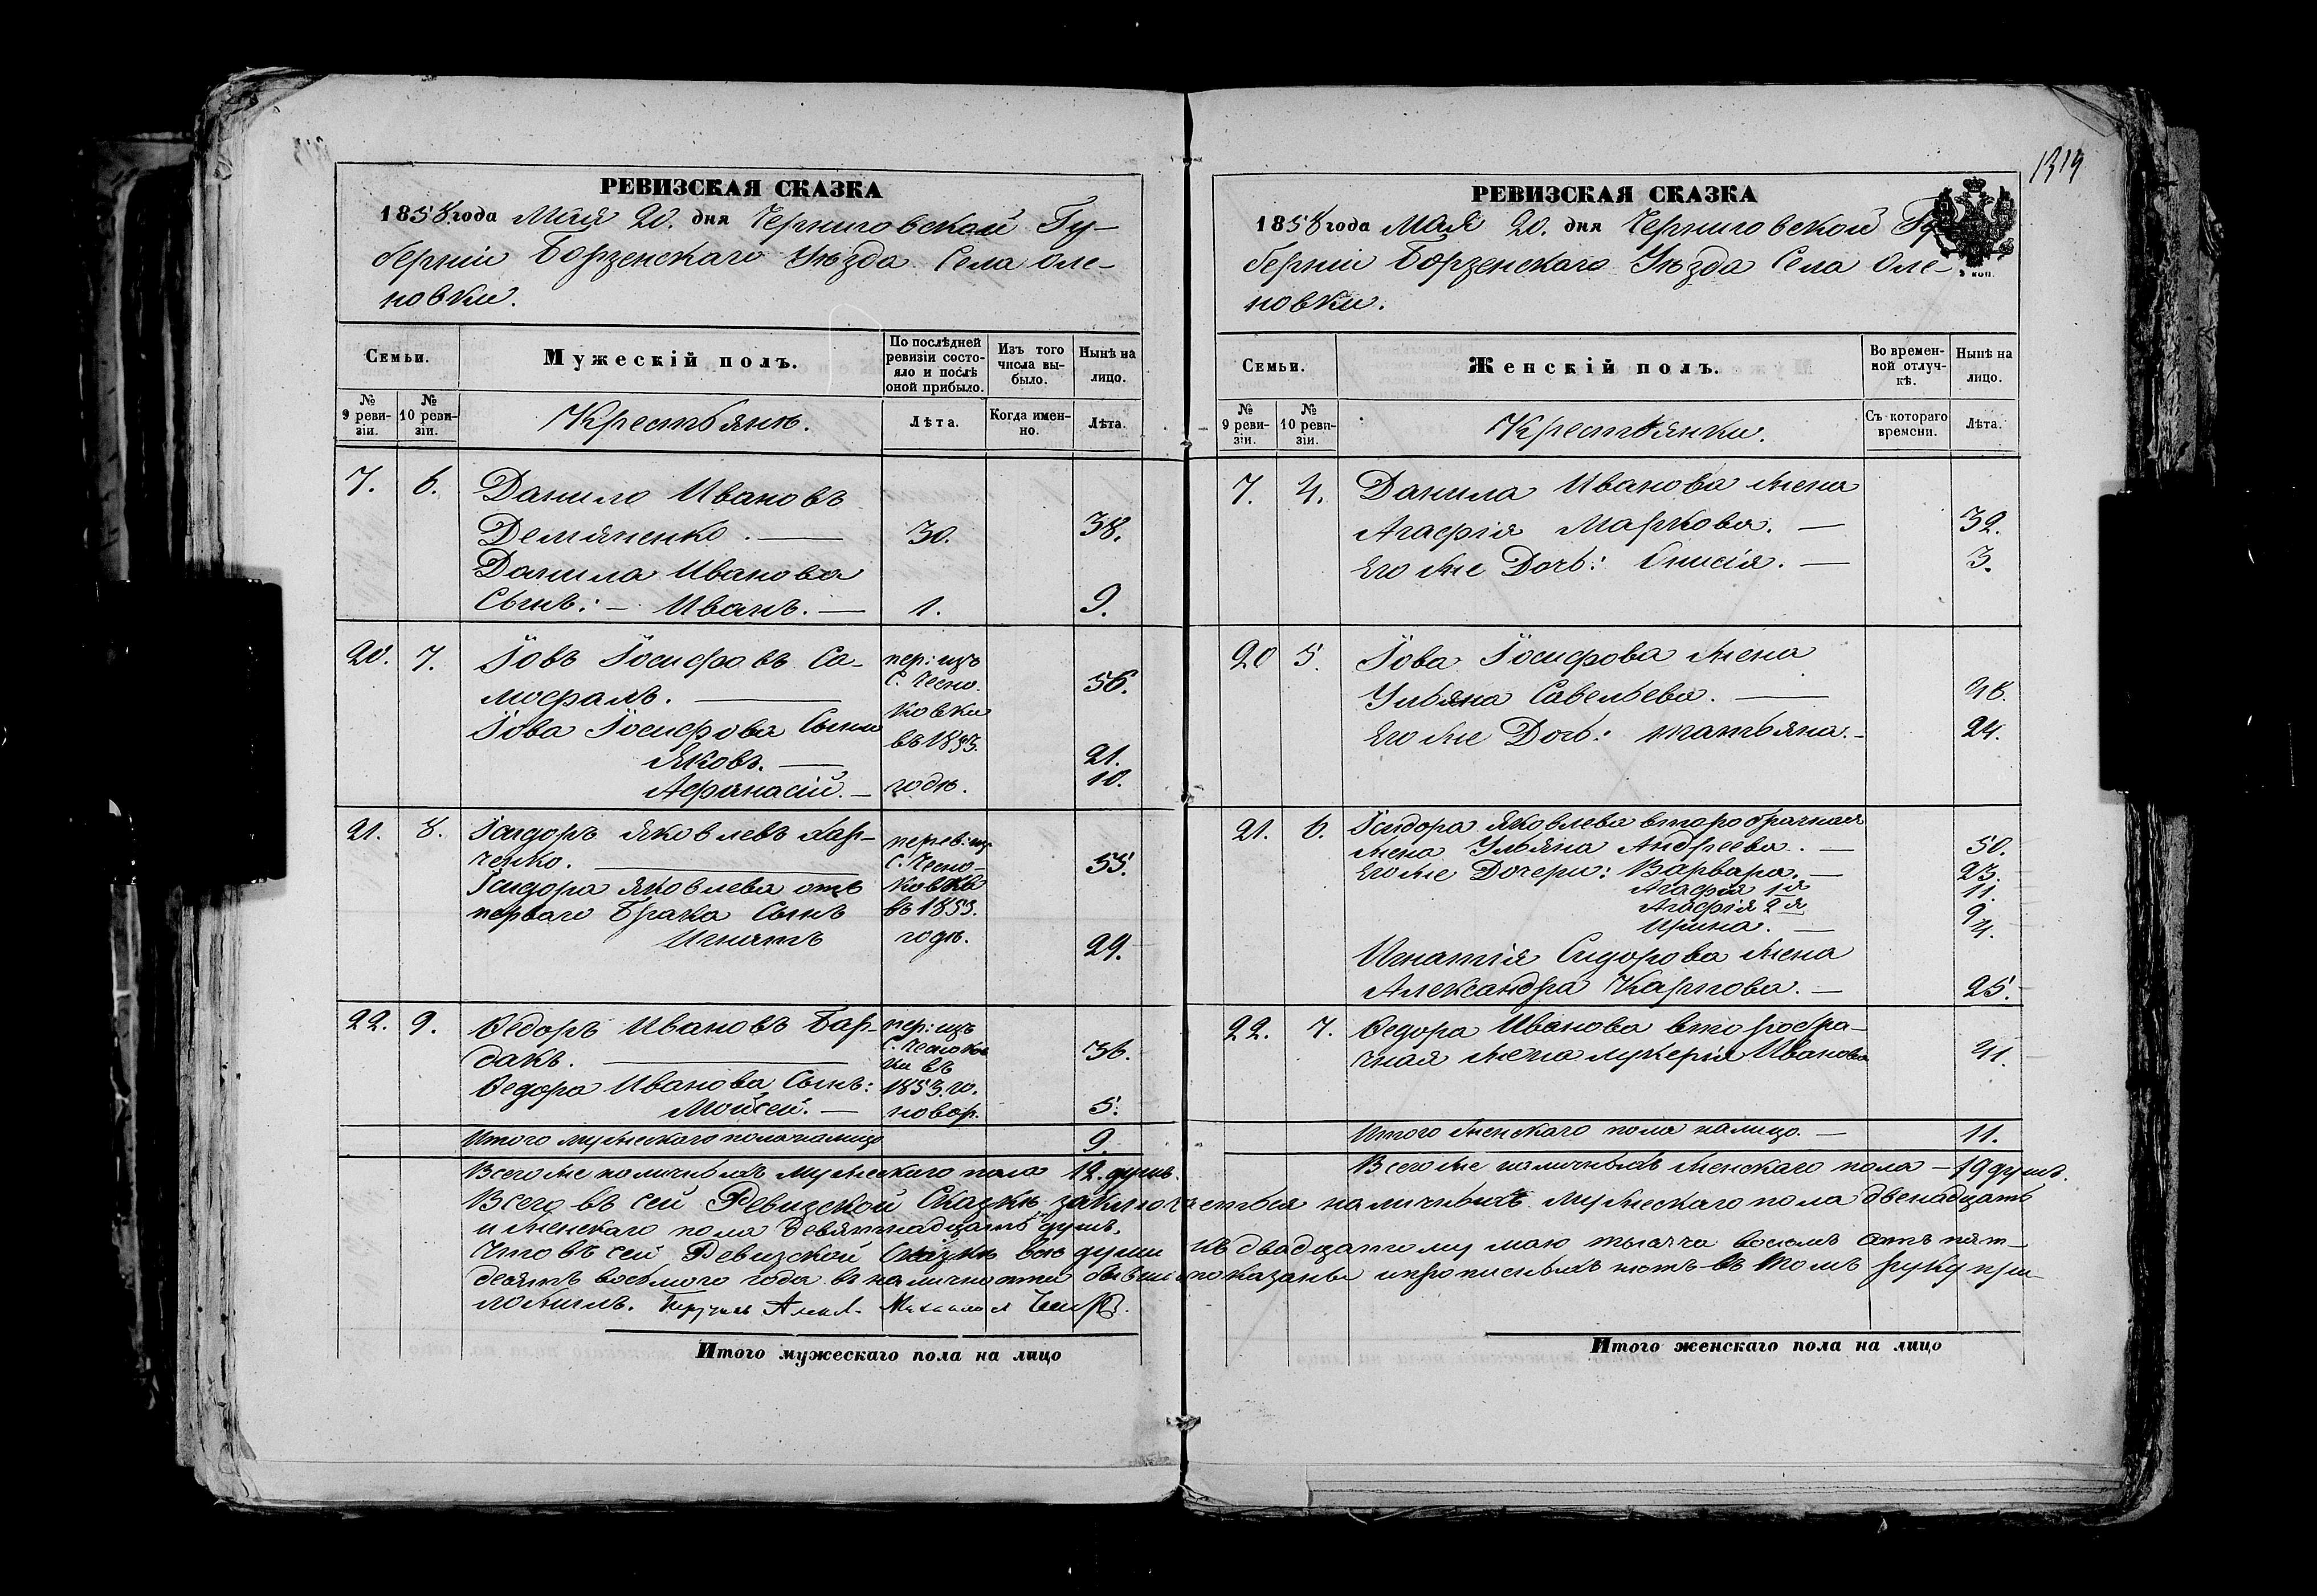 1319
РЕВИЗСКАЯ СКАЗКА
1858 года Мая 20. дня Черниговской Гу-
берніи Борзенскаго Уѣзда Села Оле-
новки.
Семьи.
Мужескій полъ.
По послѣдней ревизіи состояло и послѣ оной прибыло.
Изъ того числа выбыло.
Нынѣ на лицо.
№ 9 ревизіи.
№ 10 ревизіи.
Крестьяне.
Лѣта.
Когда именно.
Лѣта.
7. 6. Данило Ивановъ
Демяненко. — 30. 38.
Данила Иванова
Сынъ: — Иванъ. — 1. 9.
20. 7. Іовъ Іосифовъ Са- пер: изъ
мофалъ. С. Чесно- 56.
ковки
Іова Іосифова Сыны въ 1853.
Яковъ. — 21.
Афанасій. — годѣ. 10.
21. 8. Ісидоръ Яковлевъ Хар- перев: изъ
ченко. С. Чесно- 55.
Ісидора Яковлева отъ ковки
перваго брака Сынъ въ 1853.
Игнатъ годѣ. 29.
22. 9. Ѳедоръ Ивановъ Бар- пер: изъ
дакъ. С. Чесноков- 36.
ки въ
Ѳедора Иванова Сынъ: 1853 го.
Мойсей. — новор. 5.
Итого мужескаго пола налицо 9.
Всего же наличныхъ мужескаго пола 12. душъ.
РЕВИЗСКАЯ СКАЗКА
1858 года Мая 20. дня Черниговской Гу-
берніи Борзенскаго Уѣзда Села Оле-
новки.
Семьи.
Женскій полъ.
Во временной отлучкѣ.
Нынѣ на лицо.
№ 9 ревизіи.
№ 10 ревизіи.
Крестьянки.
Съ котораго времени.
Лѣта.
7. 4. Данила Иванова жена
Агафія Маркова. — 32.
Его же Дочь: Анисія. — 3.
20 5. Іова Іосифова жена
Ульяна Савельева. — 48.
Его же Дочь: Татьяна. — 24.
21. 6. Ісидора Яковлева второбрачная
жена Ульяна Андреева. — 50.
Его же Дочери: Варвара. — 23.
Агафія 1я 11.
Агафія 2я 9
Ирина. — 4.
Игнатія Сидорова жена
Александра Карпова. — 25.
22. 7. Ѳедора Иванова второбра-
чная жена Лукерія Иванова 41.
Итого женскаго пола налицо. — 11.
Всего же наличныхъ женскаго пола — 19 душъ.
Всего въ сей Ревизской Сказкѣ заключается наличныхъ мужескаго пола двенадцать
и женскаго пола девятнадцать душъ.
Что въ сей Ревизской Сказкѣ все души къ двадцатому маю тысяча восемь сотъ пят-
десятъ восьмого года въ наличности бывши показаны и прописныхъ нетъ въ томъ руку при-
ложилъ.
Итого мужескаго пола на лицо
Итого женскаго пола на лицо